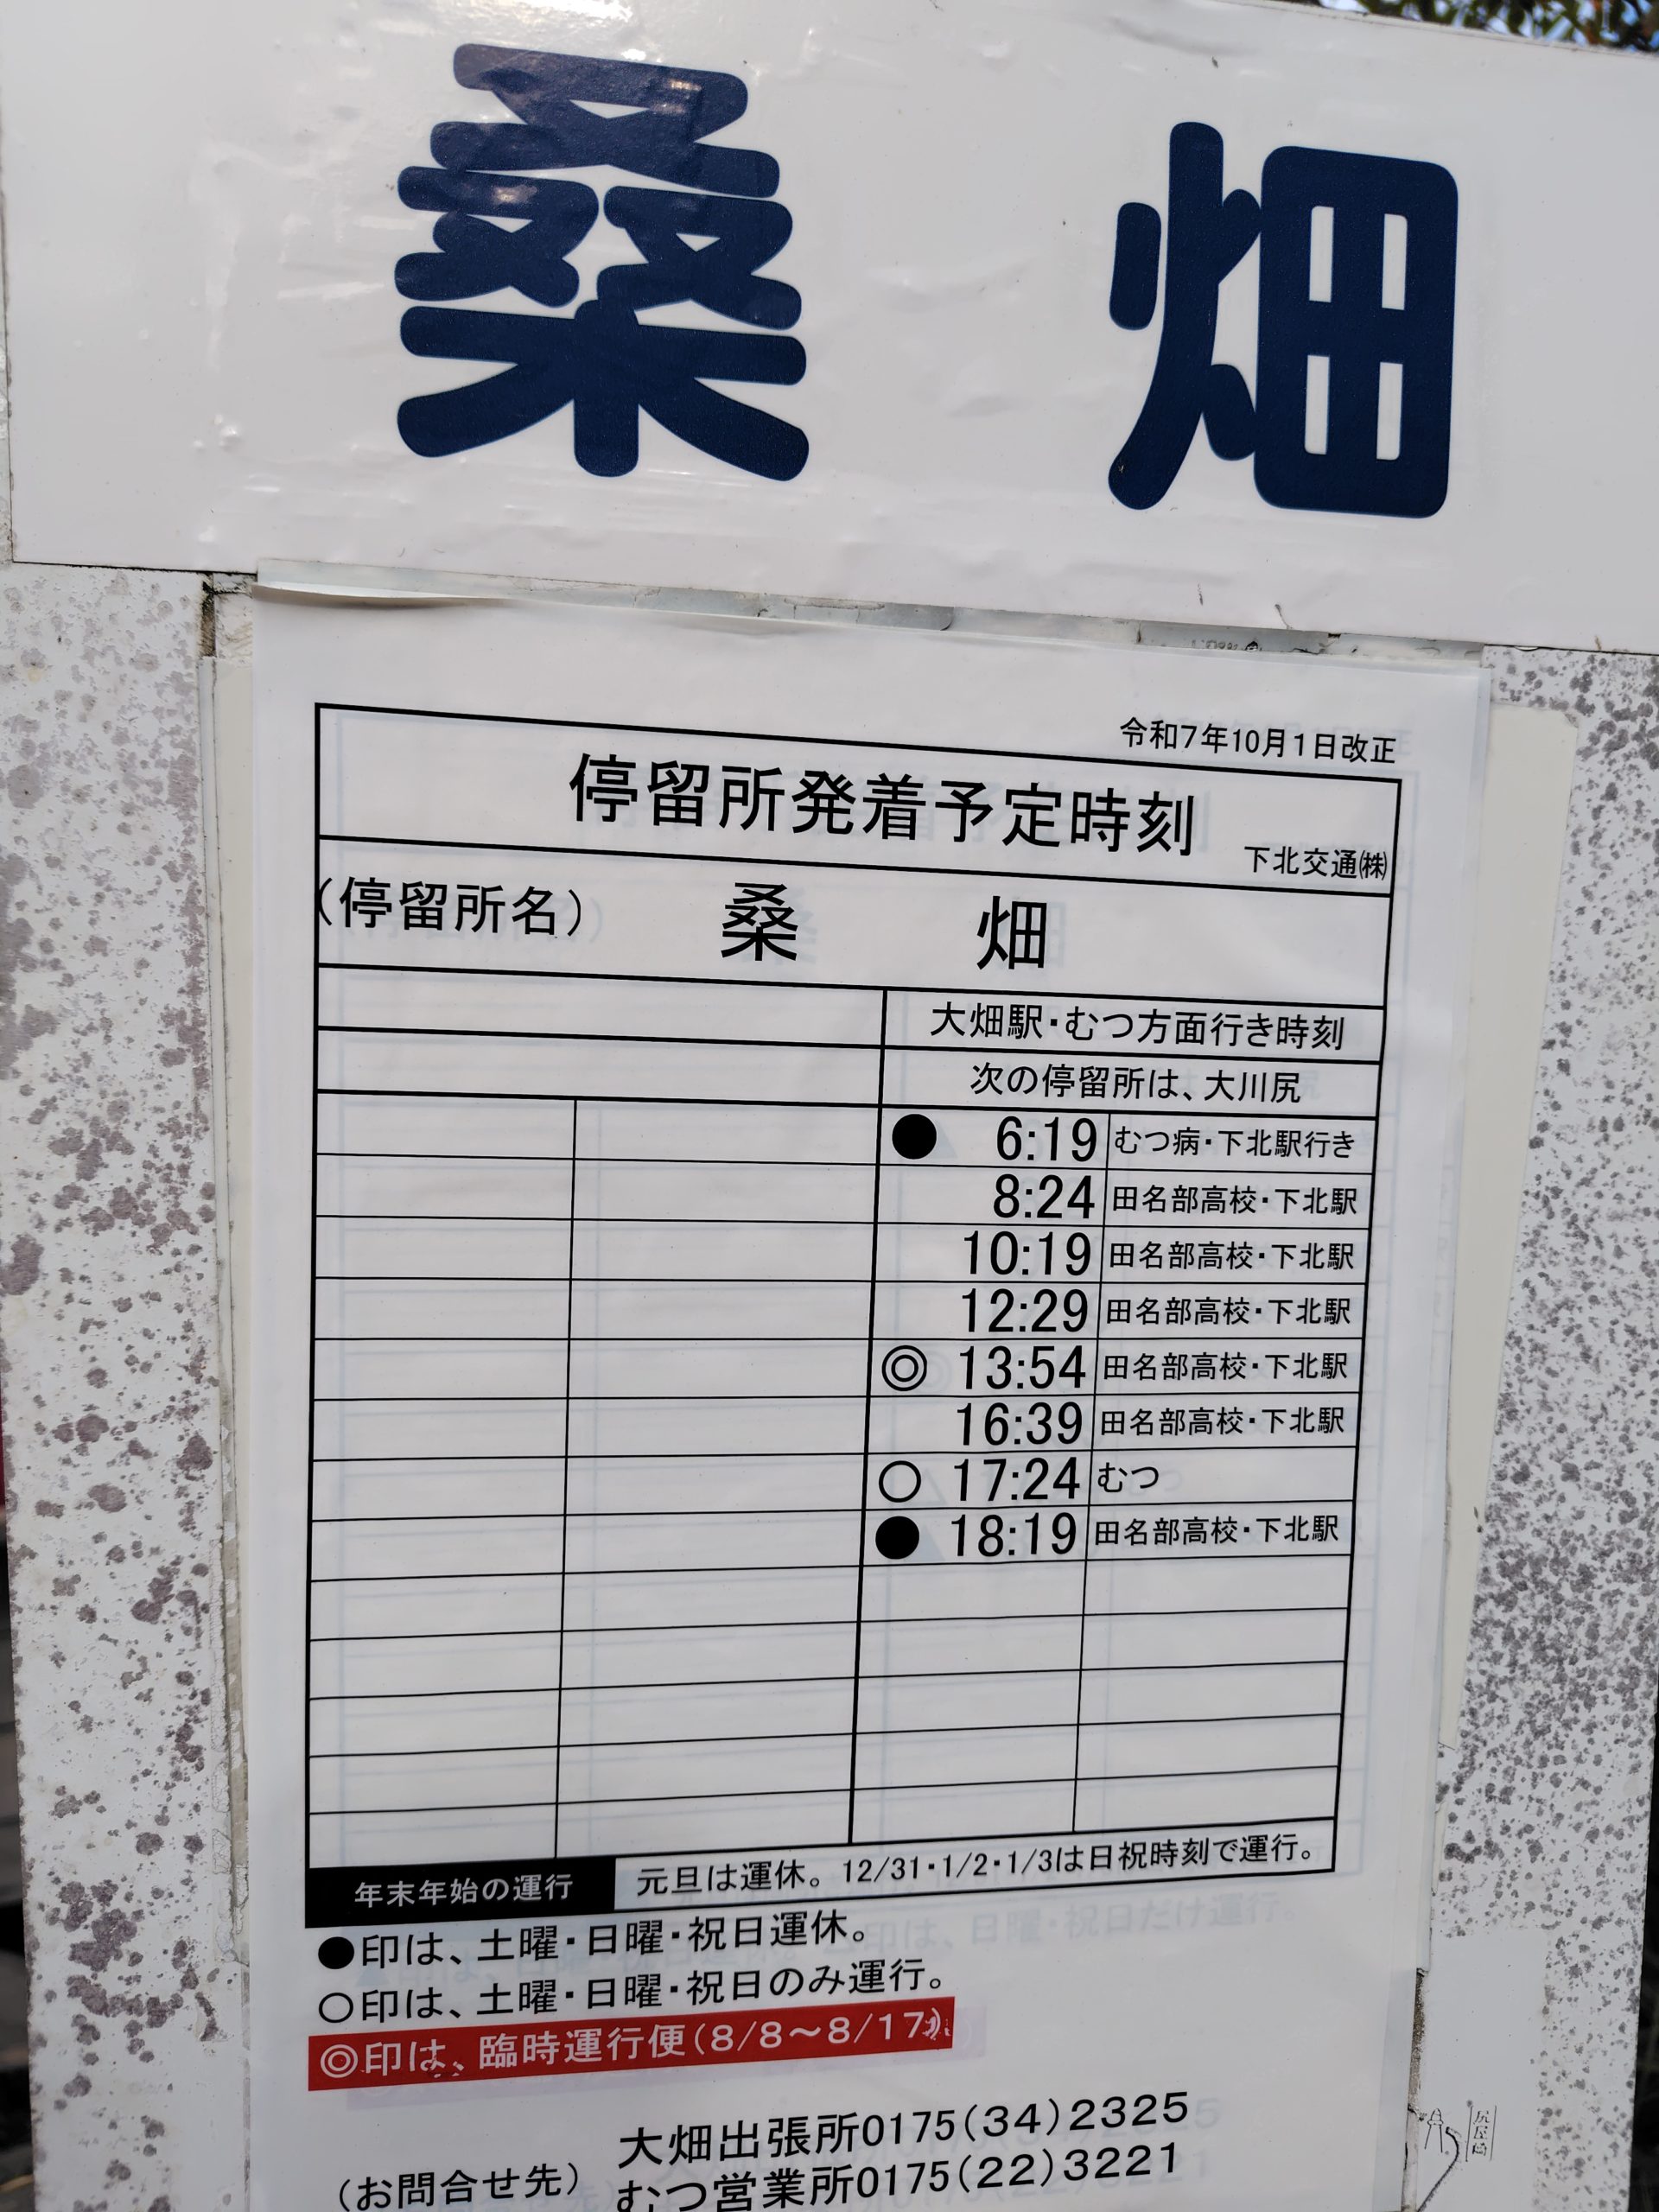 桑 畑
令和7年10月1日改正
停留所発着予定時刻
下北交通㈱
(停留所名) 桑 畑
大畑駅・むつ方面行き時刻
次の停留所は、大川尻
● 6:19 むつ病・下北駅行き
8:24 田名部高校・下北駅
10:19 田名部高校・下北駅
12:29 田名部高校・下北駅
◎ 13:54 田名部高校・下北駅
16:39 田名部高校・下北駅
○ 17:24 むつ
● 18:19 田名部高校・下北駅
年末年始の運行 元旦は運休。12/31・1/2・1/3は日祝時刻で運行。
●印は、土曜・日曜・祝日運休。
○印は、土曜・日曜・祝日のみ運行。
◎印は、臨時運行便(8/8~8/17)
大畑出張所0175(34)2325
(お問合せ先) むつ営業所0175(22)3221